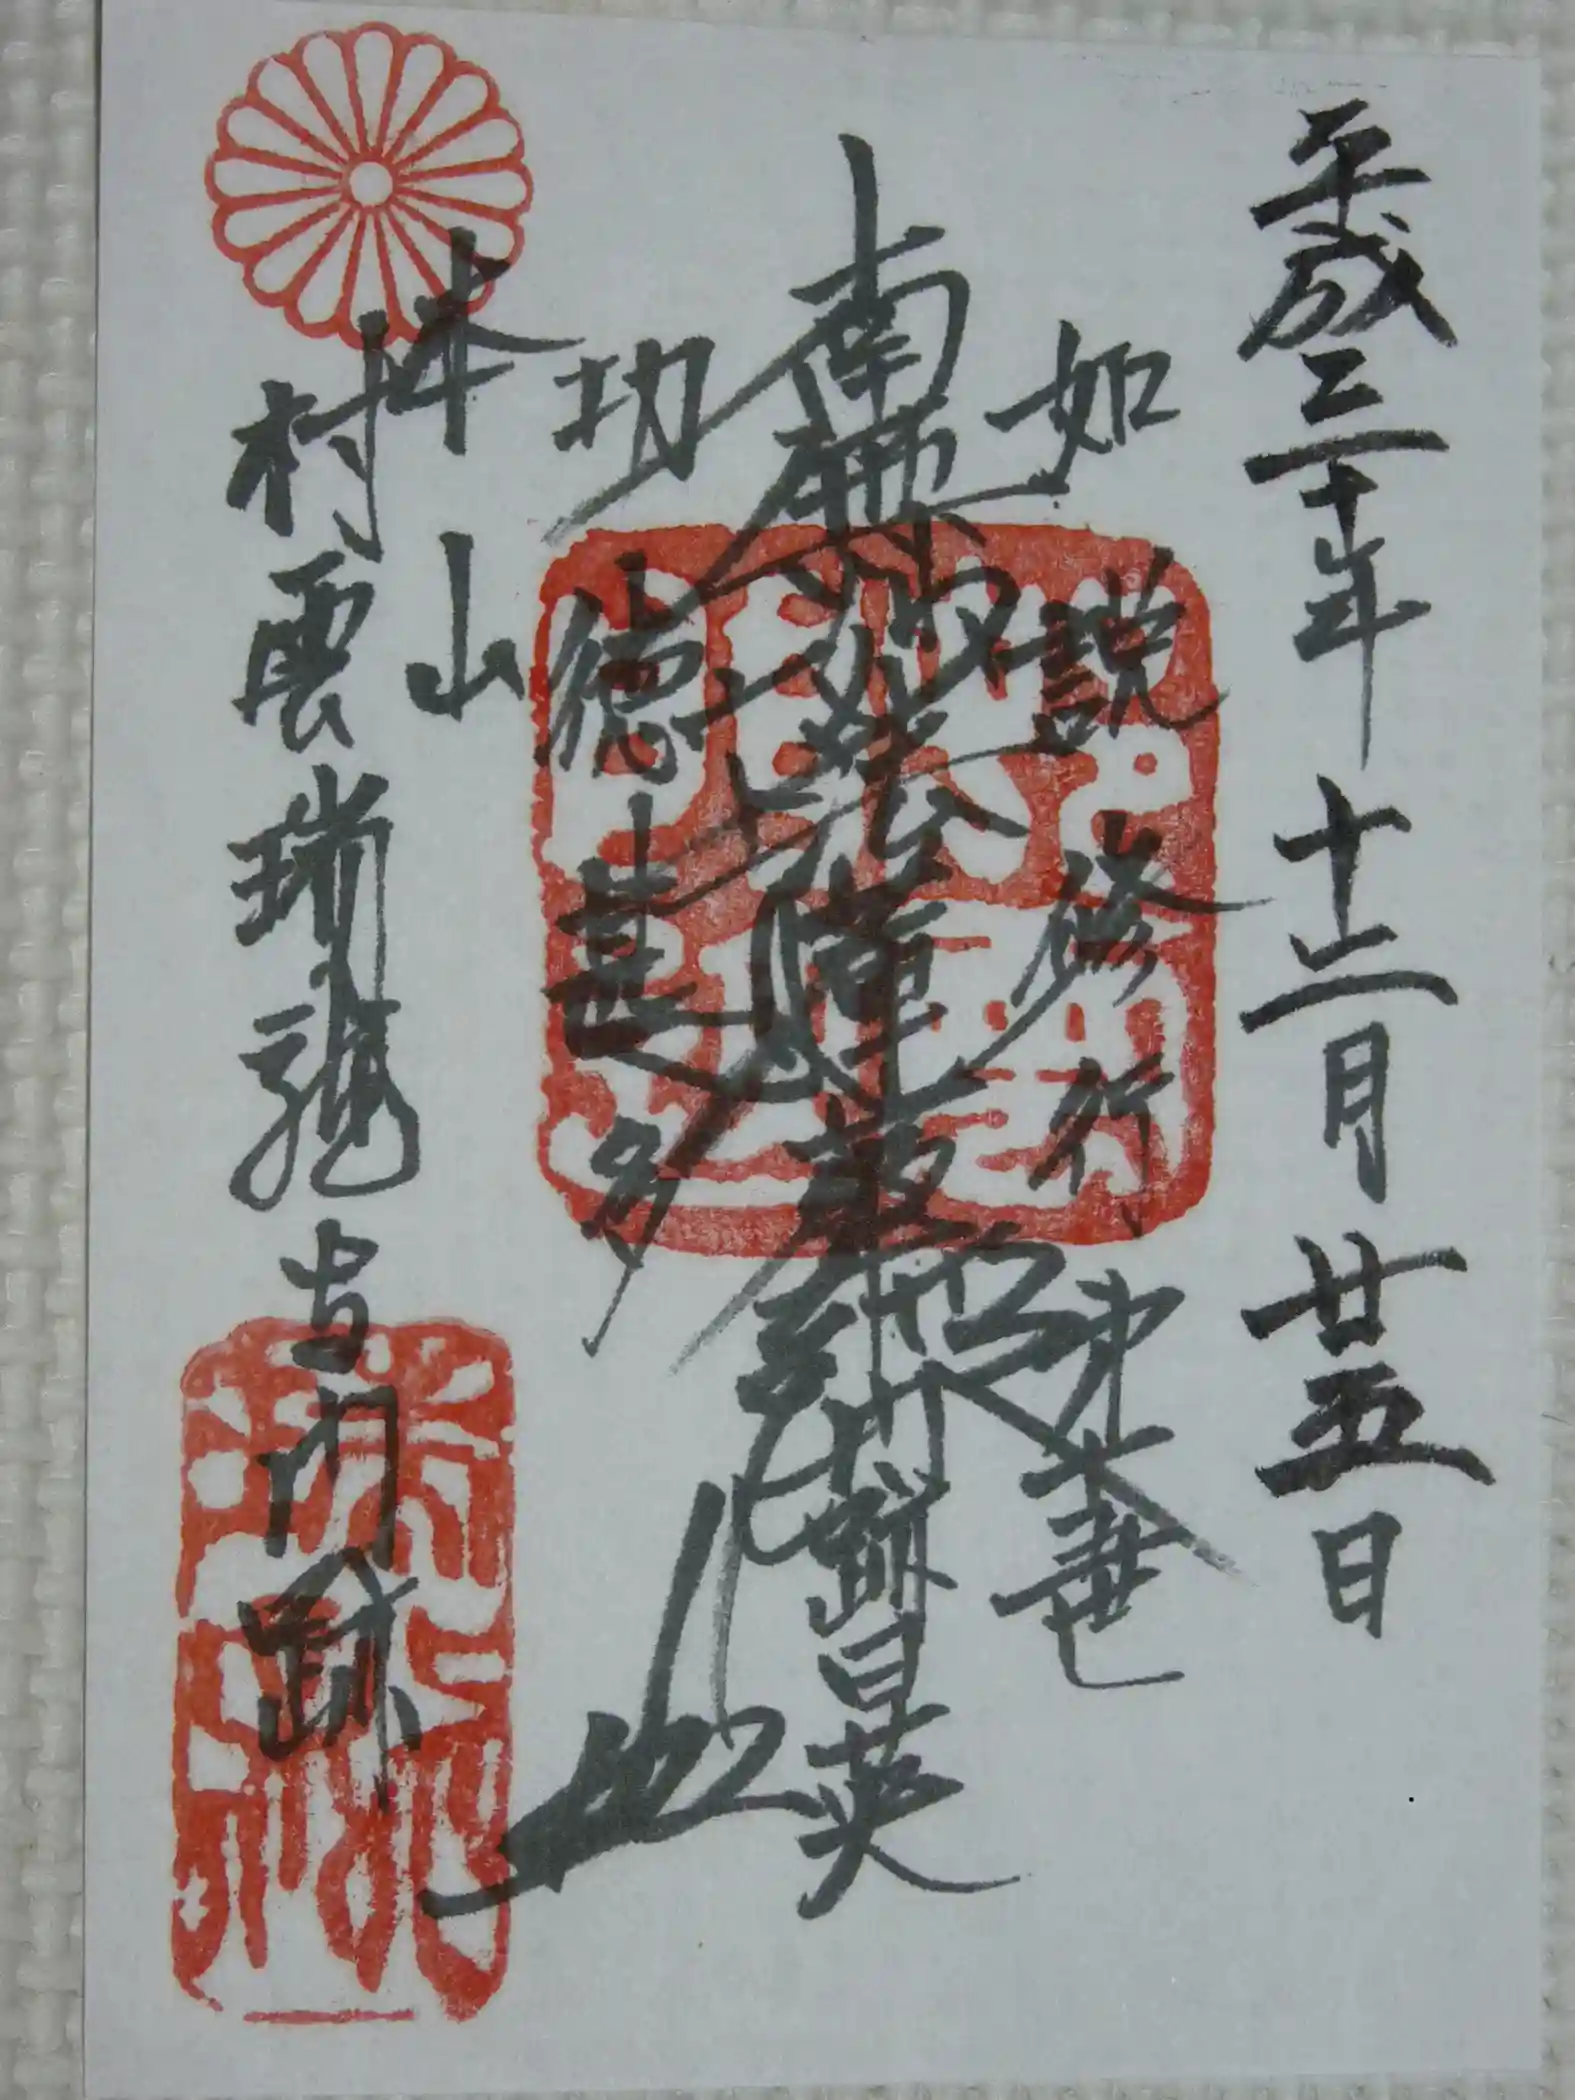 平成三十年十二月廿五日
如説修行
南無妙法蓮華経
門跡日英
功徳甚多
本山
村雲瑞龍寺門跡